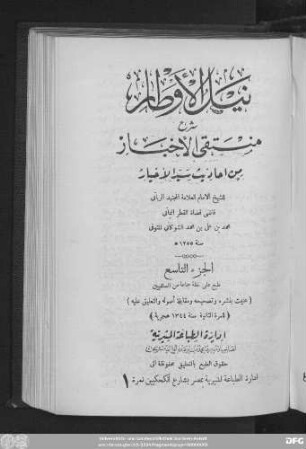 نيل الأوطار
شرح
منتقى الأخبار
من احاديث سيد الأخيار
للشيخ الامام العلامة المجتهد الرباني
قاضي قضاة القطر اليماني
محمد بن علي بن محمد الشوكاني المتوفى
سنة ١٢٥٥ هـ
الجزء التاسع
طبع على نفقة جماعة من السلفيين
( عنيت بنشره وتصحيحه ومقابلة أصوله والتعليق عليه )
( للمرة الثانية سنة ١٣٤٤ هجرية )
إدارة الطباعة المنيرية
حقوق الطبع والتعليق محفوظة الى
ادارة الطباعة المنيرية بمصر بشارع الكحكيين نمرة ١